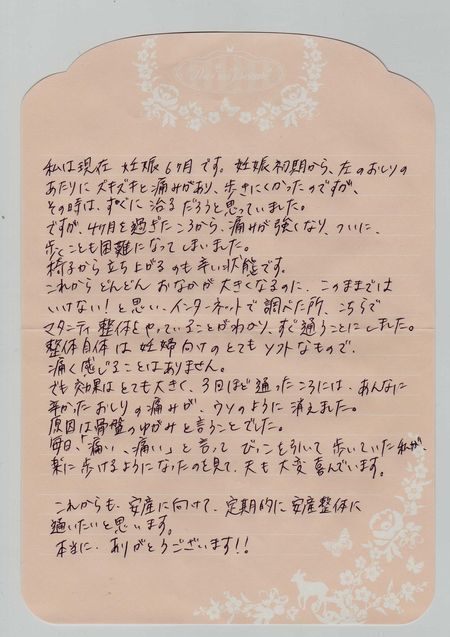 私は現在 妊娠6ヶ月です。妊娠初期から、左のおしりの
あたりにズキズキと痛みがあり、歩きにくかったのですが、
その時は、すぐに治るだろうと思っていました。
ですが、4ヶ月を過ぎたころから、痛みが強くなり、ついに、
歩くことも困難になってしまいました。
椅子から立ち上がるのも辛い状態です。
これからどんどん おなかが大きくなるのに、このままでは
いけない!と思い、インターネットで調べた所、こちらで
マタニティ整体をやっていることがわかり、すぐ通うことにしました。
整体自体は妊婦向けのとてもソフトなもので、
痛く感じることはありません。
でも効果はとても大きく、3回ほど通ったころには、あんなに
辛かったおしりの痛みが、ウソのように消えました。
原因は骨盤のゆがみと言うことでした。
毎日、「痛い、痛い」と言って びっこを引いて歩いていた私が、
楽に歩けるようになったのを見て、夫も大変喜んでいます。
これからも、安産に向けて、定期的に安産整体に
通いたいと思います。
本当に、ありがとうございます!!